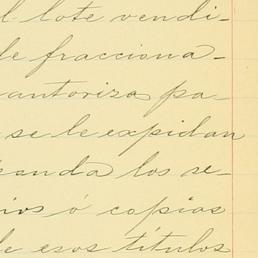 l lote vendi-
le fracciona-
autoriza pa-
se le expidan
anda los se-
ios ó copias
de esos títulos